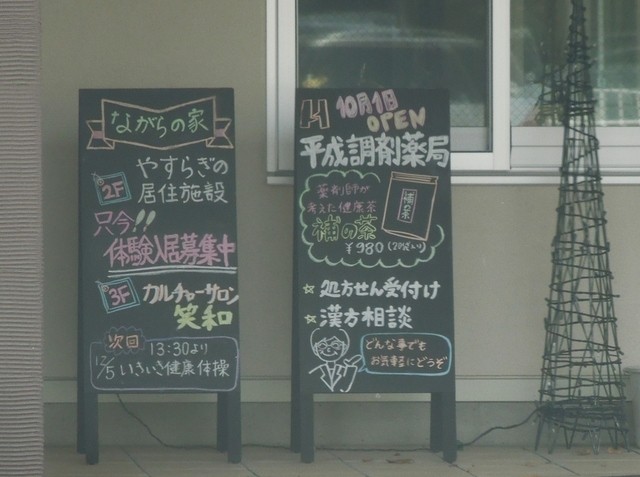 ながらの家
2F
やすらぎの
居住施設
只今!!
体験入居募集中
3F
カルチャーサロン
笑和
次回
12/5
13:30より
いきいき健康体操
10月1日
OPEN
平成調剤薬局
薬剤師が
考えた健康茶
補の茶
¥980
補の茶
☆処方せん受付け
☆漢方相談
どんな事でも
お気軽にどうぞ